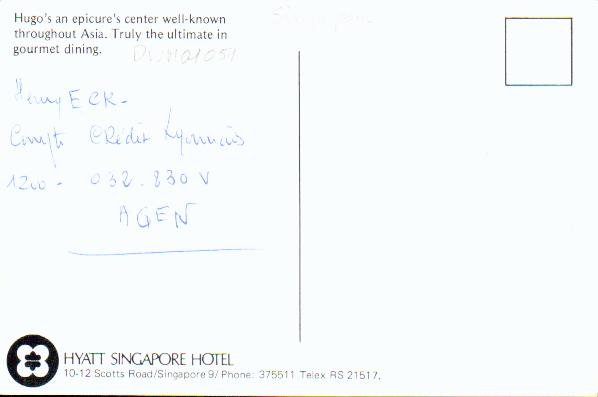 Hugo's an epicure's center well-known
throughout Asia. Truly the ultimate in
gourmet dining.
Singapour
Henry ECK-
Compte Crédit Lyonnais
1200 - 032.830 V
AGEN
HYATT SINGAPORE HOTEL
10-12 Scotts Road/Singapore 9/ Phone: 375511 Telex RS 21517.